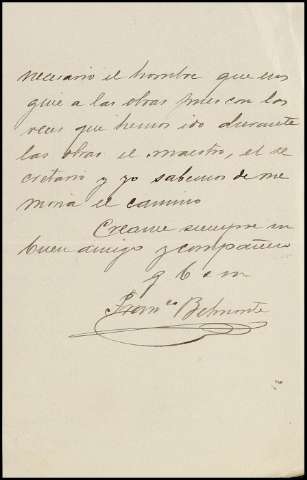 necesario el hombre que nos
guie a las obras pues con las
veces que hemos ido durante
las obras el maestro, el se
cretario y yo sabemos de me
moria el camino
Creame siempre su
buen amigo y compañero
q b s m
Franco Belmonte